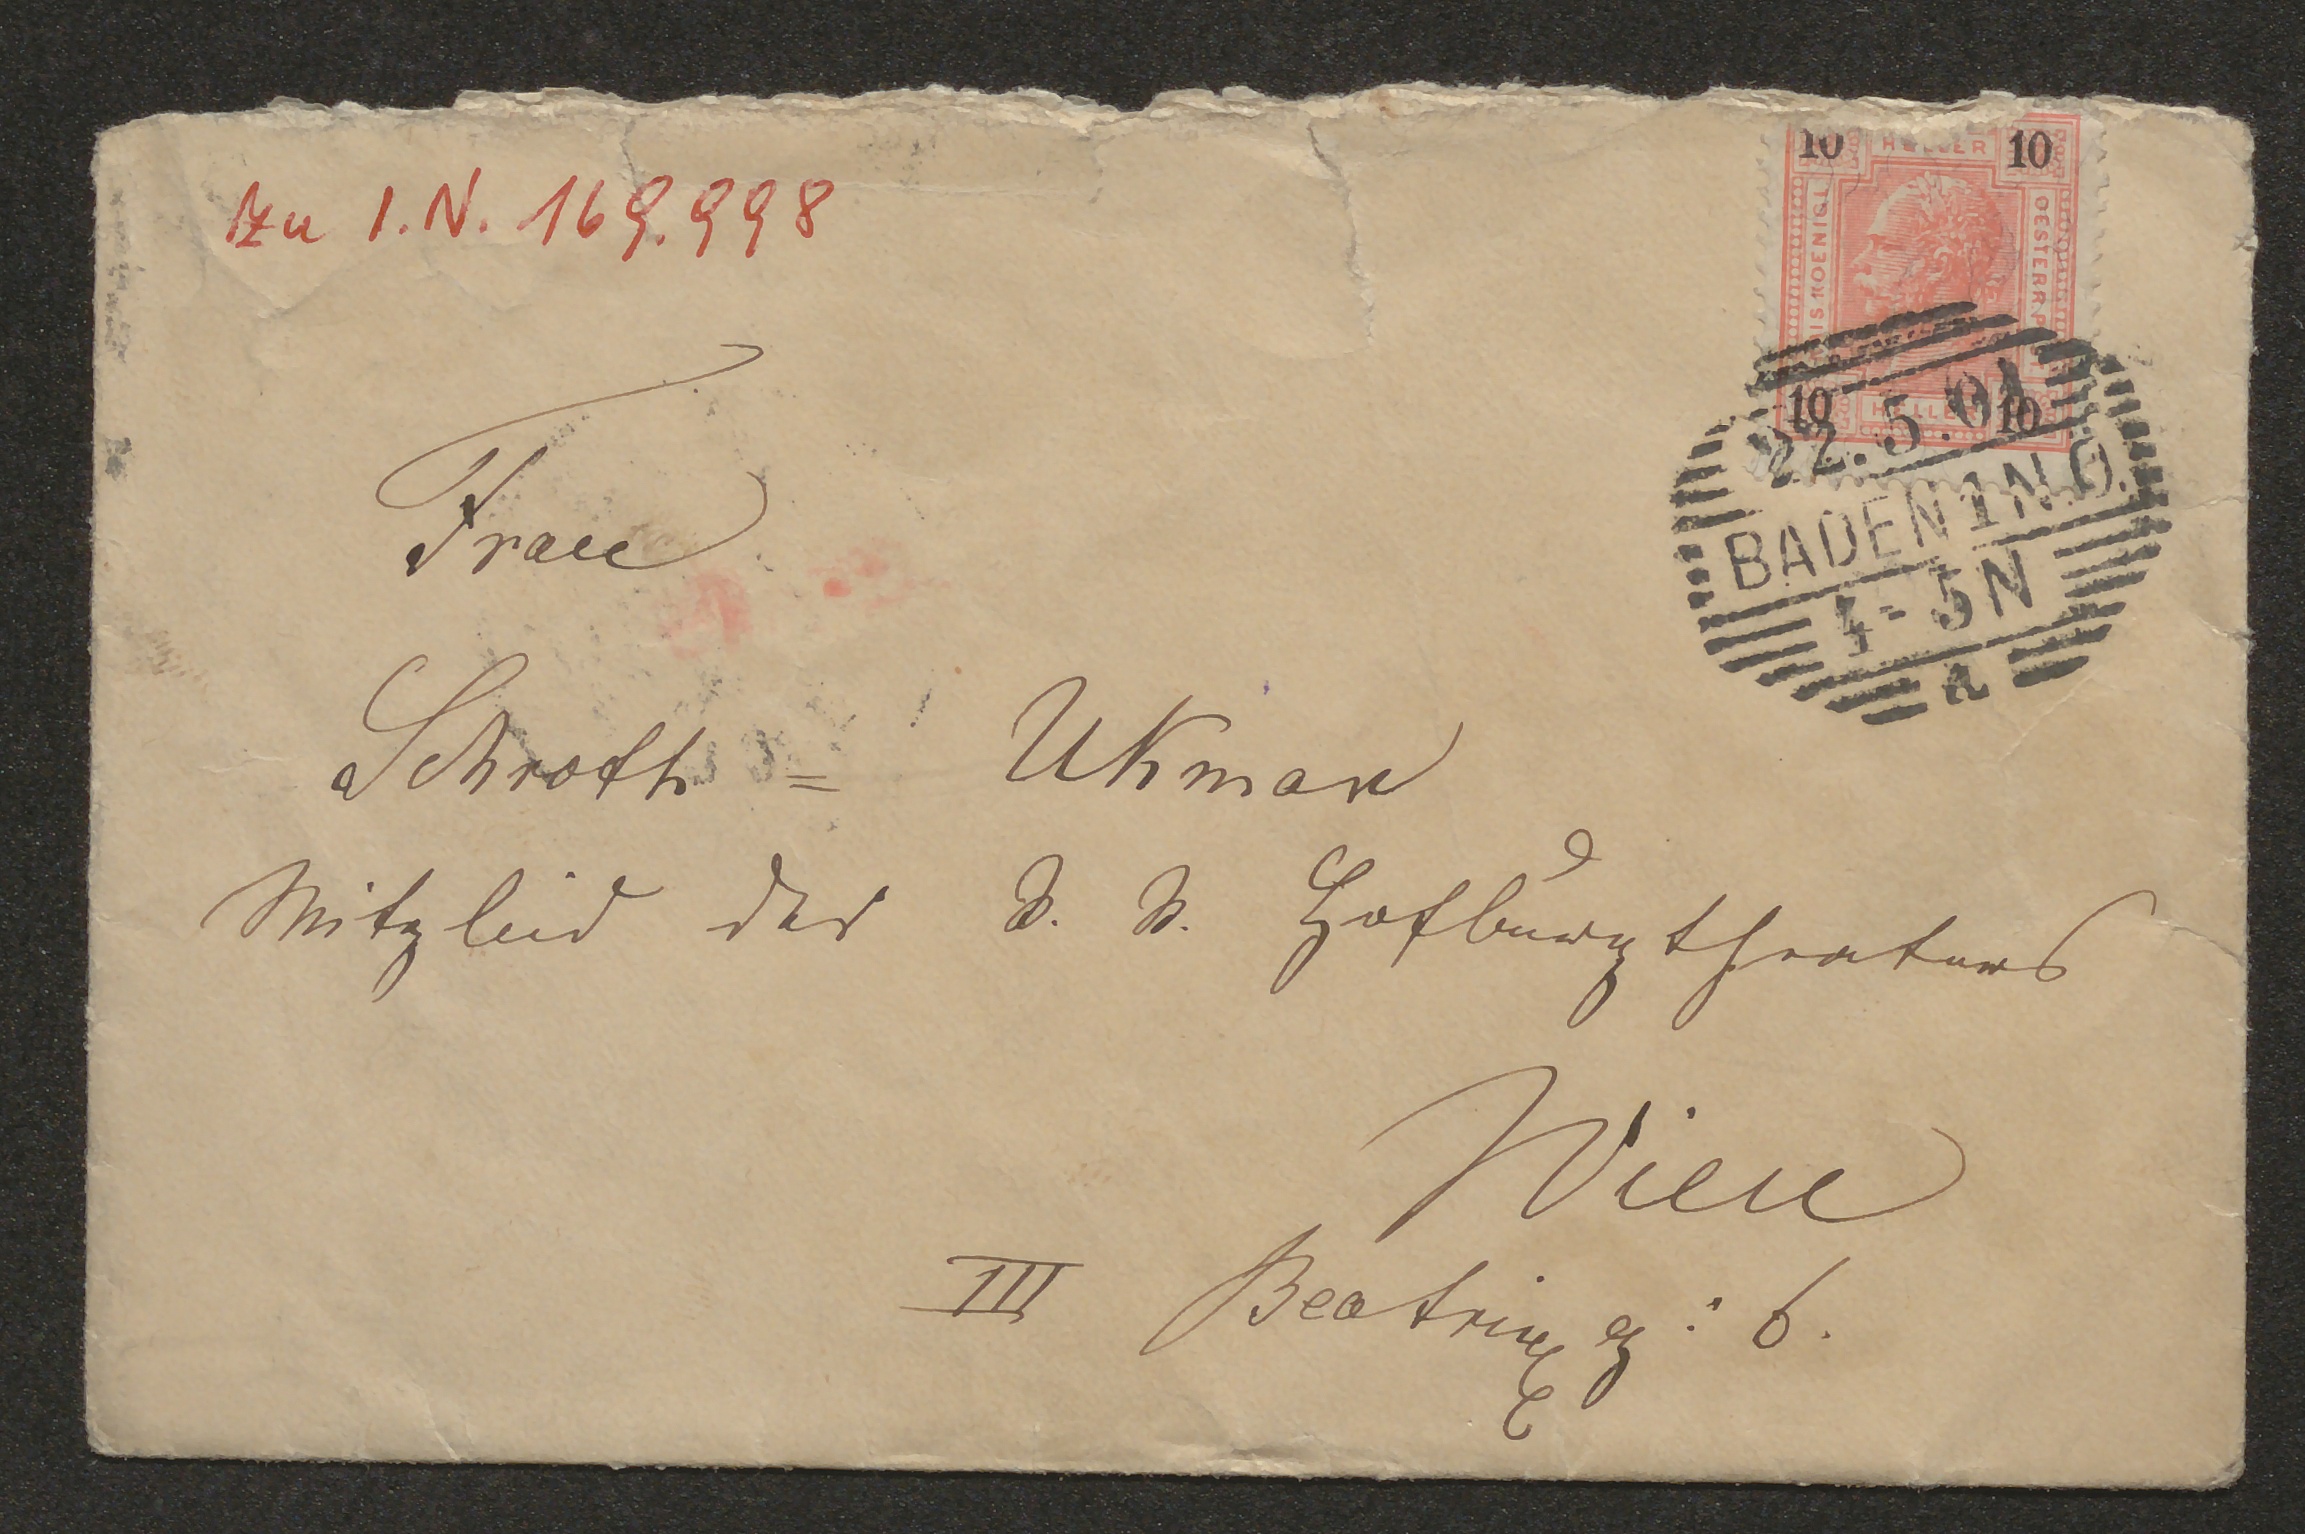 zu I.N. 169.998
10 HELLER 10
KOENIGL
OESTERR
10 HELLER 10
22.5.01
BADEN 1 N.Ö.
4-5N
Frau
Schroth = Ukman
Mitglied des k. k. Hofburgtheaters
Wien
III Beatrixg: 6.